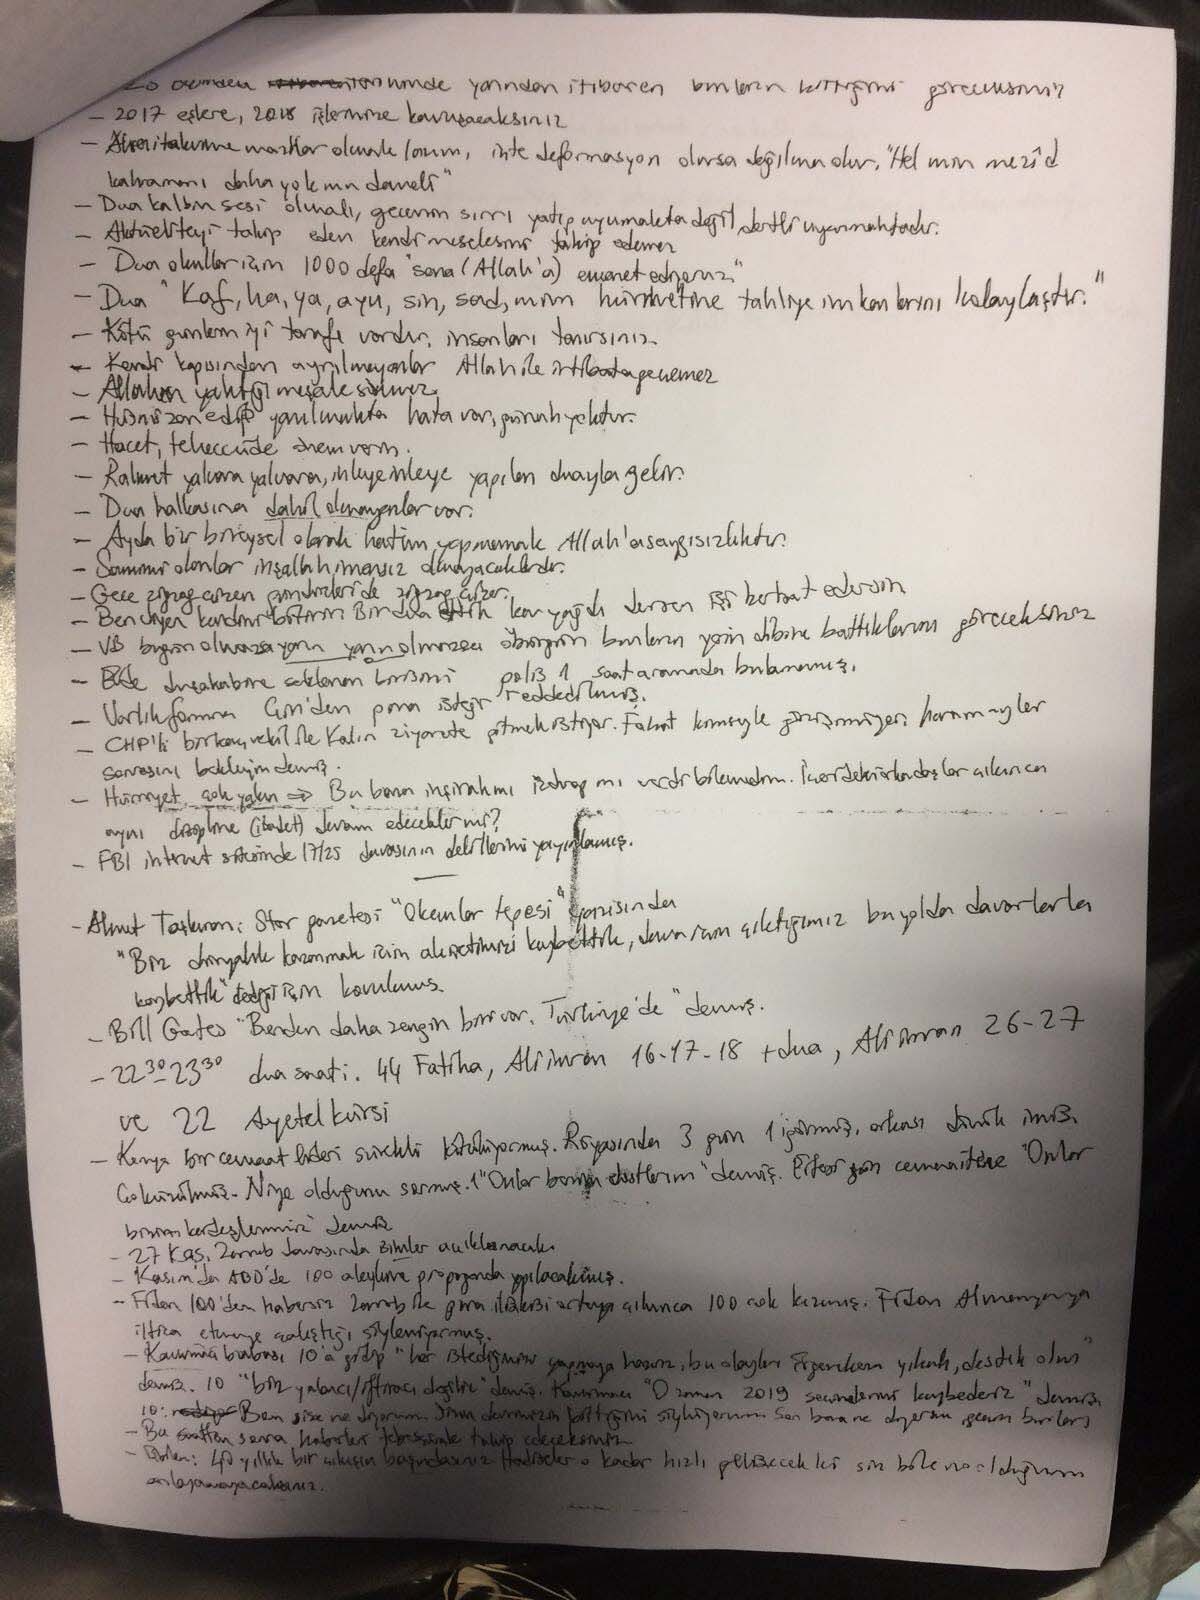 yarından itibaren bunların bittiğini göreceksiniz
- 2017 eşlere, 2018 işlerinize kavuşacaksınız
- mazhar olmak lazım, işte deformasyon olursa değilma olur. "Hel min mezid
kahramanı daha yok mu demeli"
- Dua kalbin sesi olmalı, gecenin sırrı yatıp uyumakta değil dertli uyanmaktadır.
- Aktüeliteyi takip eden kendi meselesini takip edemez
- Dua okullar için 1000 defa "sana (Allah'a) emanet ediyoruz"
- Dua "Kaf, ha, ya, ayn, sin, sad, mim hürmetine tahliye imkanlarını kolaylaştır."
- Kötü günlerin iyi tarafı vardır, insanları tanırsınız.
- Kendi kapısından ayrılmayanlar Allah ile irtibata geçemez
- Allahın yaktığı meşale sönmez
- Hüsnü zan edip yanılmakta hata var, günah yoktur.
- Hacet, teheccüde önem verin.
- Rahmet yalvara yalvara, inleye inleye yapılan duayla gelir.
- Dua halkasına dahil olmayanlar var.
- Ayda bir bireysel olarak hatim yapmamak Allah'a saygısızlıktır.
- Samimi olanlar inşallah imansız olmayacaklardır.
- Gece zigzag çizen gündüzleri de zigzag çizer.
- Ben diyen kendini bitirir. Bir dua ettik kar yağdı dersen işi berbat edersin
- VB bugün olmazsa yarın yarın olmazsa öbürgün bunların yerin dibine battıklarını göreceksiniz
- duşakabine saklanan birisini polis 1 saat aramada bulamamış.
- Varlık fonuna Çin'den para isteği reddedilmiş.
- CHP'li birkaç vekil ile Kalın ziyarete gitmek istiyor. Fakat kimseyle görüşmüyor. haram aylar
sonrasını bekleyin demiş.
- Hürriyet çok yakın => Bu bana inşirah mı ızdırap mı verdi bilemedim. İçerdeki arkadaşlar çıkınca
aynı disipline (ibadet) devam edecekler mi?
- FBI internet sitesinde 17/25 davasının delillerini yayınlamış.
- Ahmet Taşkıran: Star gazetesi "Okçular tepesi" yazısında
"Biz dünyalık kazanmak için ahiretimizi kaybettik, dava için çıktığımız bu yolda davarlarla
kaybettik" dediği için kovulmuş.
- Bill Gates "Benden daha zengin biri var. Türkiye'de" demiş.
- 22³⁰-23³⁰ dua saati. 44 Fatiha, Ali imran 16-17-18 + dua, Ali imran 26-27
ve 22 Ayetel kürsi
- Kenya bir cemaat lideri sürekli kötülüyormuş. Rüyasında 3 gün 1 i görmüş, arkası dönük imiş.
Niye olduğunu sormuş. 1 "Onlar benim dostlarım" demiş. Ertesi gün cemaatine "Onlar
bizim kardeşlerimiz" demiş
- 27 Kas. Zarrab davasında isimler açıklanacak.
- Kasım'da ABD'de 100 aleyhine propaganda yapılacakmış.
- Fidan 100'den habersiz Zarrab ile para ilişkisi ortaya çıkınca 100 çok kızmış. Fidan Almanyaya
iltica etmeye çalıştığı söyleniyormuş.
- Kavurmacı babası 10'a gidip "her istediğinizi yapmaya hazırız, bu olayları yıkak, destek olun"
demiş. 10 "biz yalancı/iftiracı değiliz" demiş. Kavurmacı "O zaman 2019 seçimlerini kaybederiz" demiş.
10: Ben size ne diyorum. bittiğini söylüyorum. Sen bana ne diyorsun
- Bu saatten sonra haberleri takip edeceksiniz
- 40 yıllık bir çıkışın başındasınız. Hadiseler o kadar hızlı gelişecek ki siz bile ne olduğunu
anlayamayacaksınız.